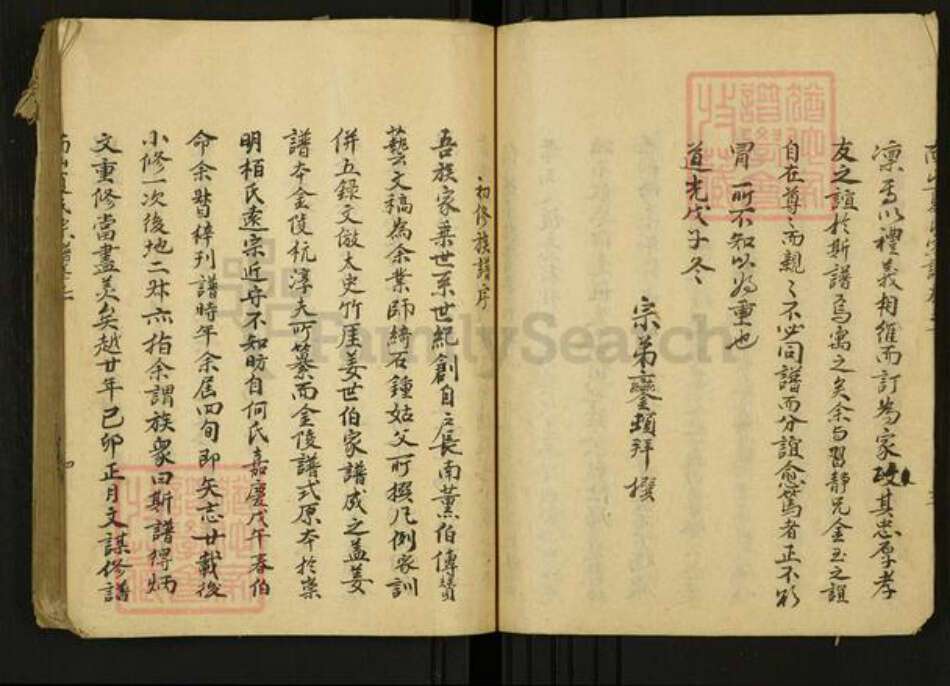 凜焉以禮義相維而訂為家政其忠厚孝
友之誼於斯譜焉寓之矣余与習靜兄金玉之誼
自在尊尊而親親不必同譜而分誼愈篤者正不
胃所不知以為重也
道光戊子冬
宗弟鑾頓拜撰
初修族譜序
吾族家乘世系世紀創自扆南薰伯傳贊
藝文稿為余業師綺石鍾姑父所撰凡例家訓
併五錄文倣太史竹厓姜世伯家譜成之蓋姜
譜本金陵杭淳夫所纂而金陵譜式原本於崇
明栢氏遠宗近守不知昉自何氏嘉慶戊午春伯
命余暂梓刋譜時年余屆四旬即矢志廿載後
小修一次後地二 亦指余謂族衆曰斯譜得炳
文重修當盡美矣越廿年己卯正月文謀修譜